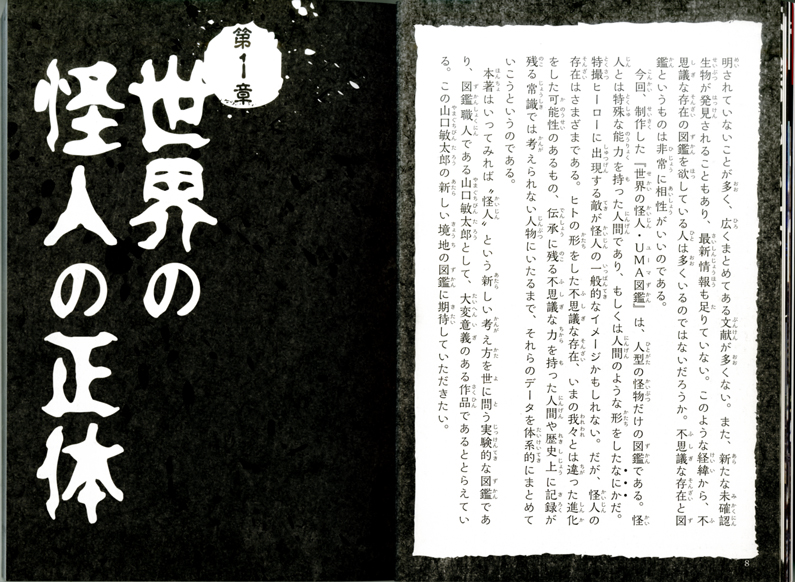 明されていないことが多く、広くまとめてある文献が多くない。また、新たな未確認
生物が発見されることもあり、最新情報も足りていない。このような経緯から、不
思議な存在の図鑑を欲している人は多くいるのではないだろうか。不思議な存在と図
鑑というものは非常に相性がいいのである。
今回、制作した『世界の怪人・UMA図鑑』は、人型の怪物だけの図鑑である。怪
人とは特殊な能力を持った人間であり、もしくは人間のような形をしたなにかだ。
特撮ヒーローに出現する敵が怪人の一般的なイメージかもしれない。だが、怪人の
存在はさまざまである。ヒトの形をした不思議な存在、いまの我々とは違った進化
をした可能性のあるもの、伝承に残る不思議な力を持った人間や歴史上に記録が
残る常識では考えられない人物にいたるまで、それらのデータを体系的にまとめて
いこうというのである。
本著はいってみれば〝怪人〟という新しい考え方を世に問う実験的な図鑑であ
り、図鑑職人である山口敏太郎として、大変意義のある作品であるととらえてい
る。この山口敏太郎の新しい境地の図鑑に期待していただきたい。
8
第1章
世界の
怪人の正体